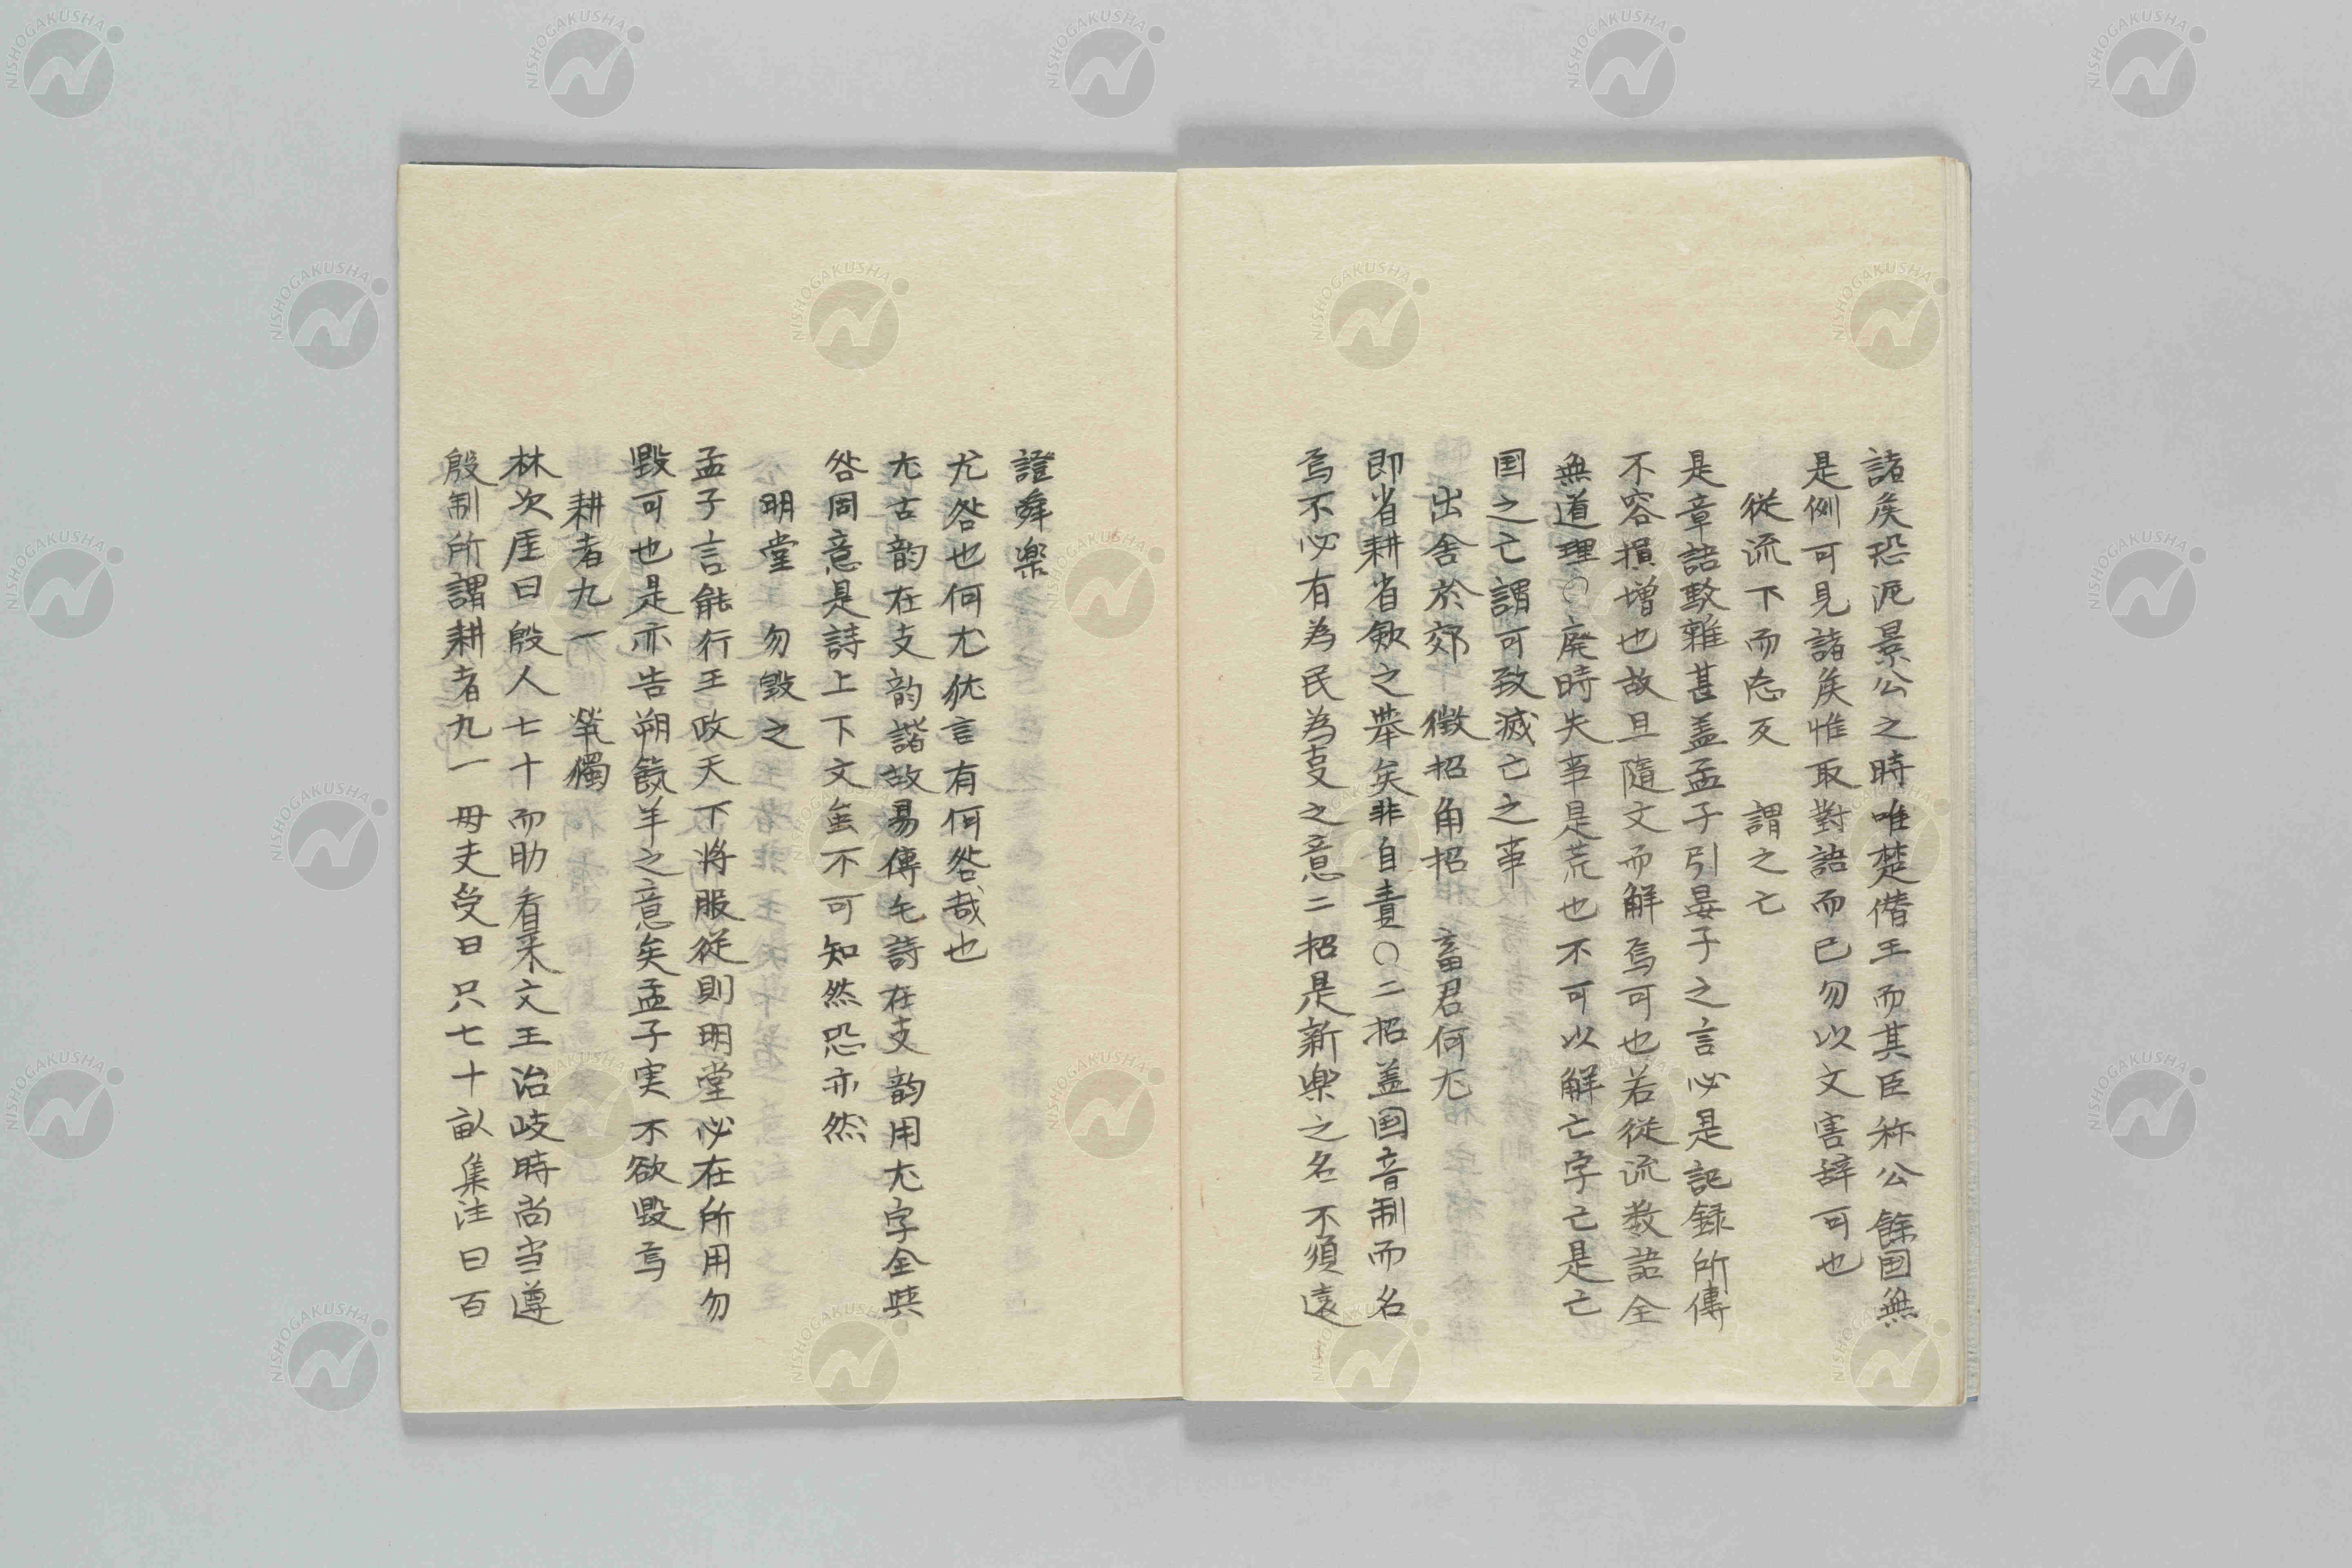 諸矦恐泥景公之時唯楚僭王而其臣称公餘国無
是例可見諸矦惟取對語而已勿以文害辞可也
従流下而忘反　謂之亡
是章語駁雜甚盖孟子引晏子之言必是記録所傳
不容損增也故且隨文而解焉可也若従流数語全
無道理○廃時失事是荒也不可以解亡字亡是亡
国之亡謂可致滅亡之事
出舎於郊　徴招角招　畜君何尤
即省耕省歛之挙矣非自責○二招盖国音制而名
焉不必有為民為事之意二招是新楽之名不須遠
證舜楽
尤咎也何尤犹言有何咎哉也
尤古韵在支韵諧故易傳毛詩在支韵用尤字全與
咎同意是詩上下文虽不可知然恐亦然
明堂　勿毀之
孟子言能行王政天下将服従則明堂必在所用勿
毀可也是亦告朔餼羊之意矣孟子実不欲毀焉
耕者九一　煢獨
林次厓曰殷人七十而助看来文王治岐時尚当遵
殷制所謂耕者九一毋夫受田只七十畝集注曰百
NISHOGAKUSHA